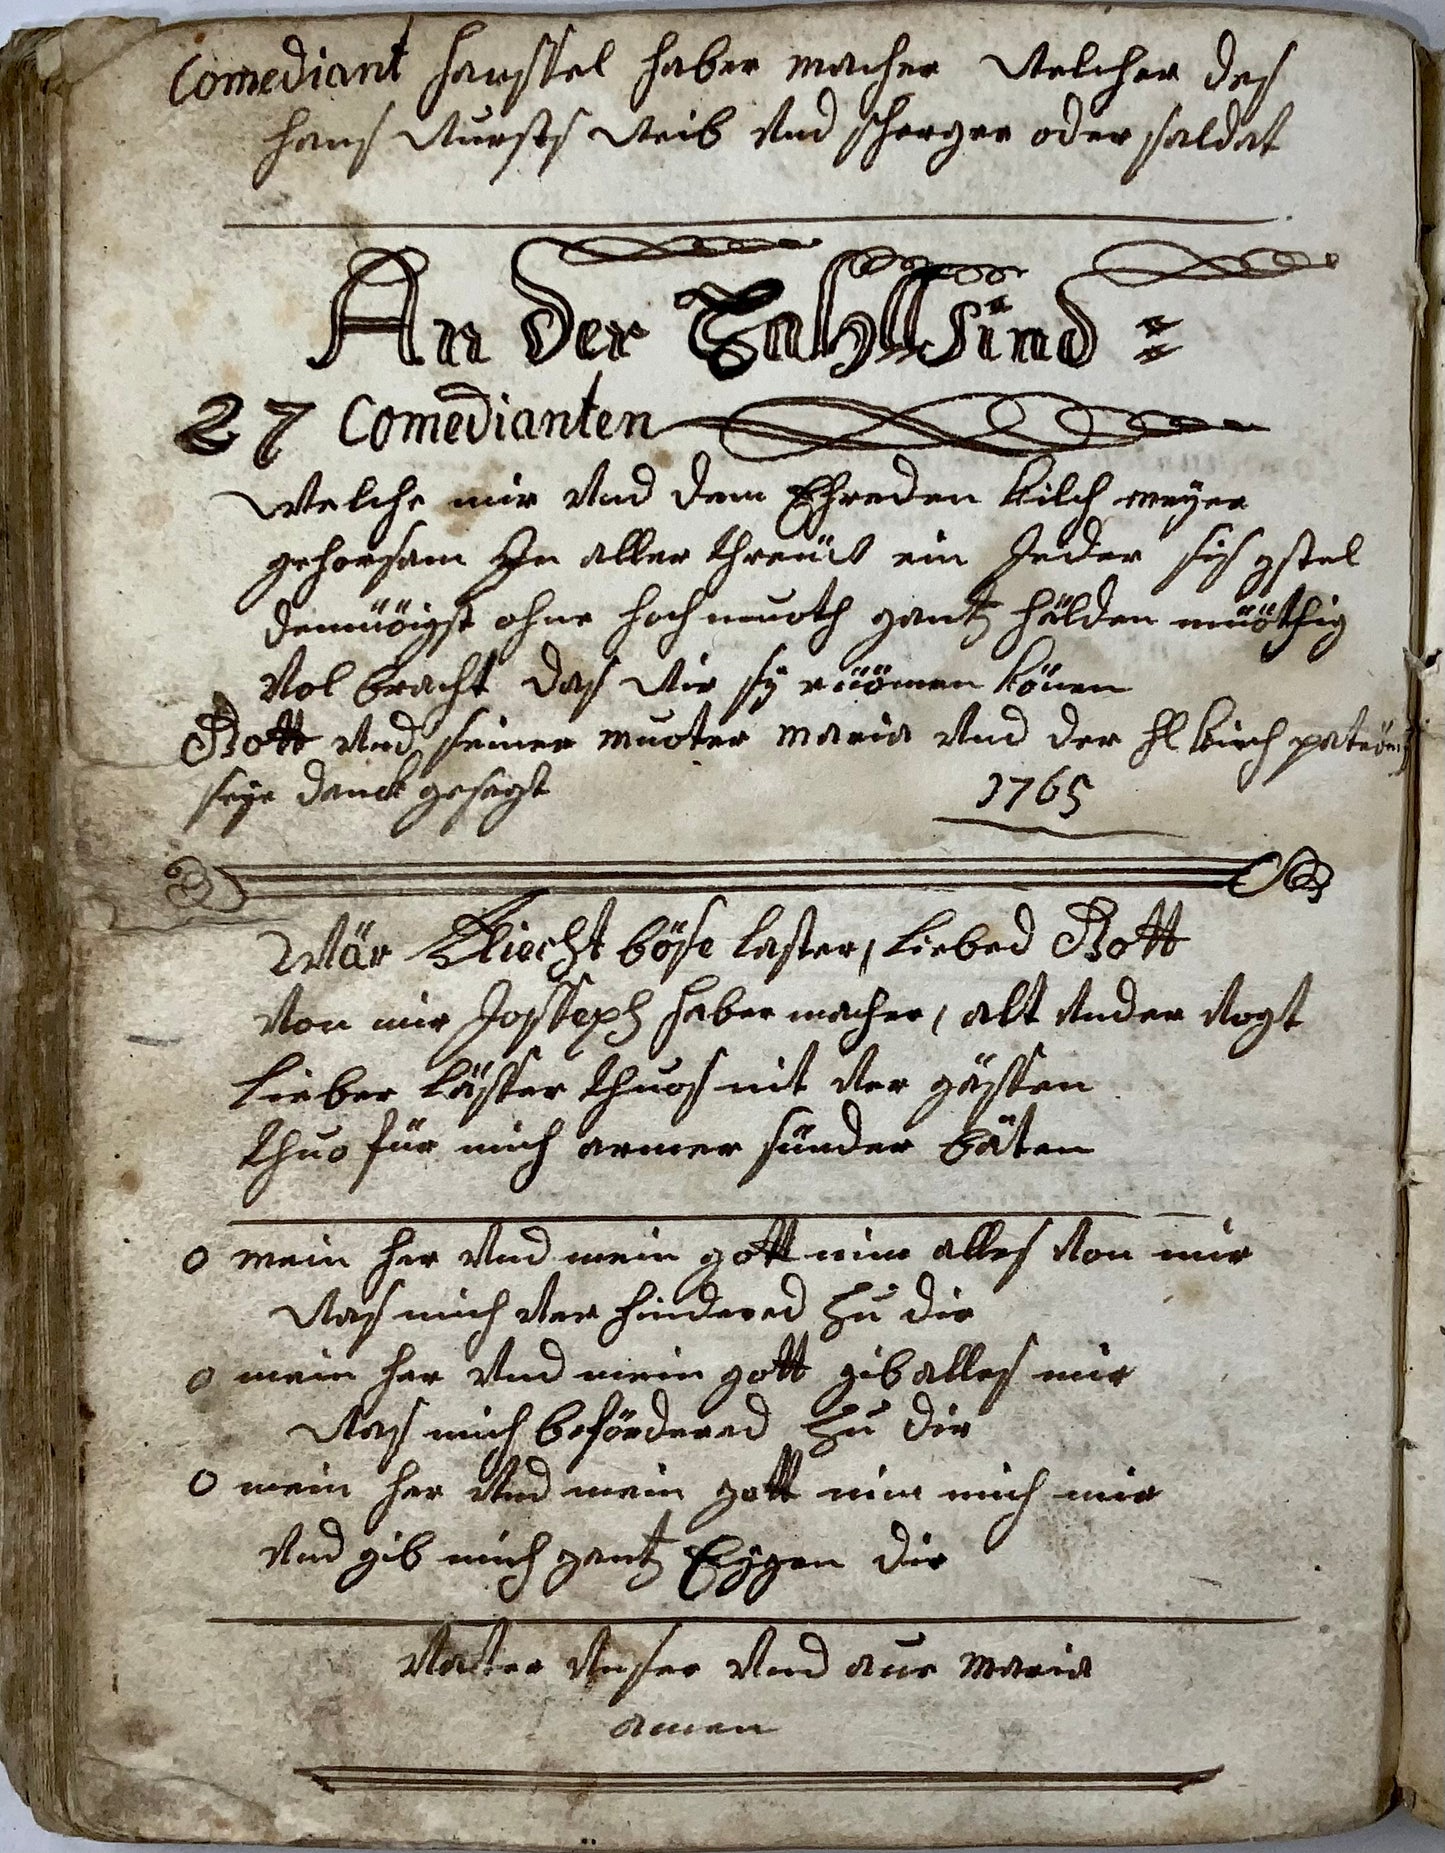 Comediant hansſel haber macher Welcher des
hans Wursts Weib Vnd scherger oder saldat
An der Zahll sind :
27 Comedianten
Welche mir Vnd dem Ehreden kilch meyer
gehorsam In aller threüw ein Jeder sis gstel
demüöigst ohne hoch muoth gantz hälden müöthig
Vol bracht das Wir sy rüömen könen
Gott Vnd seiner muoter maria Vnd der hl kirch patrön
seye danck gesagt 1765
Wär fliecht böse laster, liebed Gott
Von mir Josseph haber macher, alt Vnder Vogt
lieber lässer thuos nit Ver gässen
thuo für mich armer sünder bäten
O mein her Vnd mein gott nim alles Von mir
Was mich Ver hindered zu dir
O mein her Vnd mein gott gib alles mir
Was mich befördered zu dir
O mein her Vnd mein gott nim mich mir
Vnd gib mich gantz Eygen dir
Vatter Vnser Vnd aue maria
amen